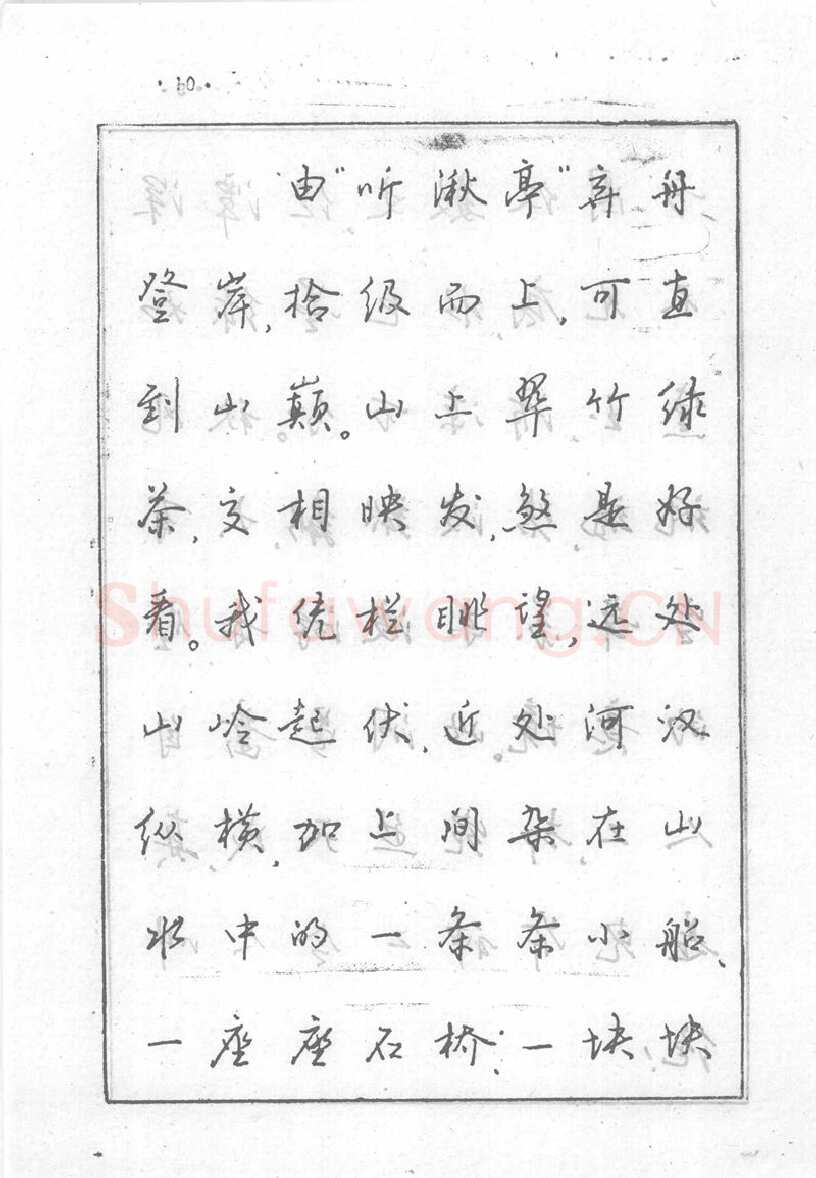 · 60 ·
由“听湫亭”弃舟
登岸，拾级而上。可直
到山巅。山上翠竹绿
茶，交相映发，煞是好
看。我凭栏眺望，远处
山岭起伏，近。处河汊
纵横，加上间杂在山
水中的一条条小船、
一座座石桥；一块块
Shufawang.CN